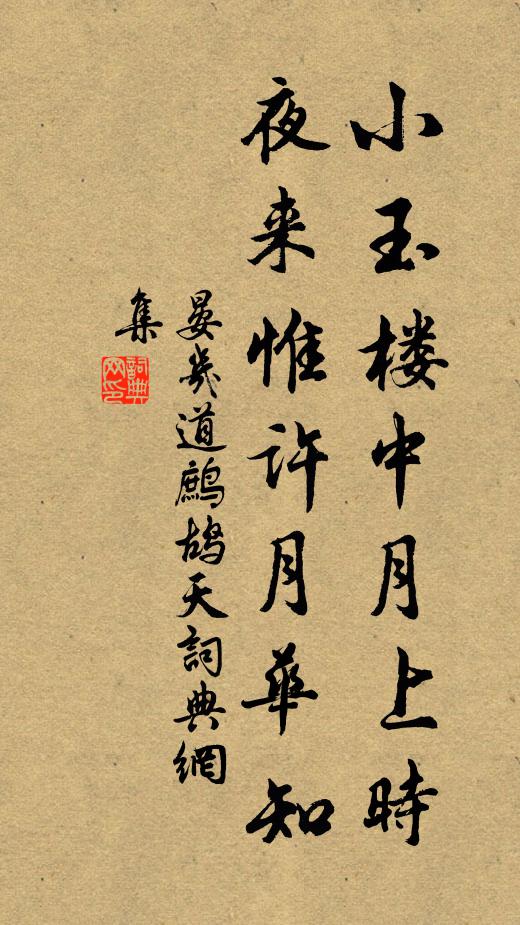 小玉楼中月上時
夜来惟许月華知
晏幾道鷓鴣天詞典網
集
詞典
网印